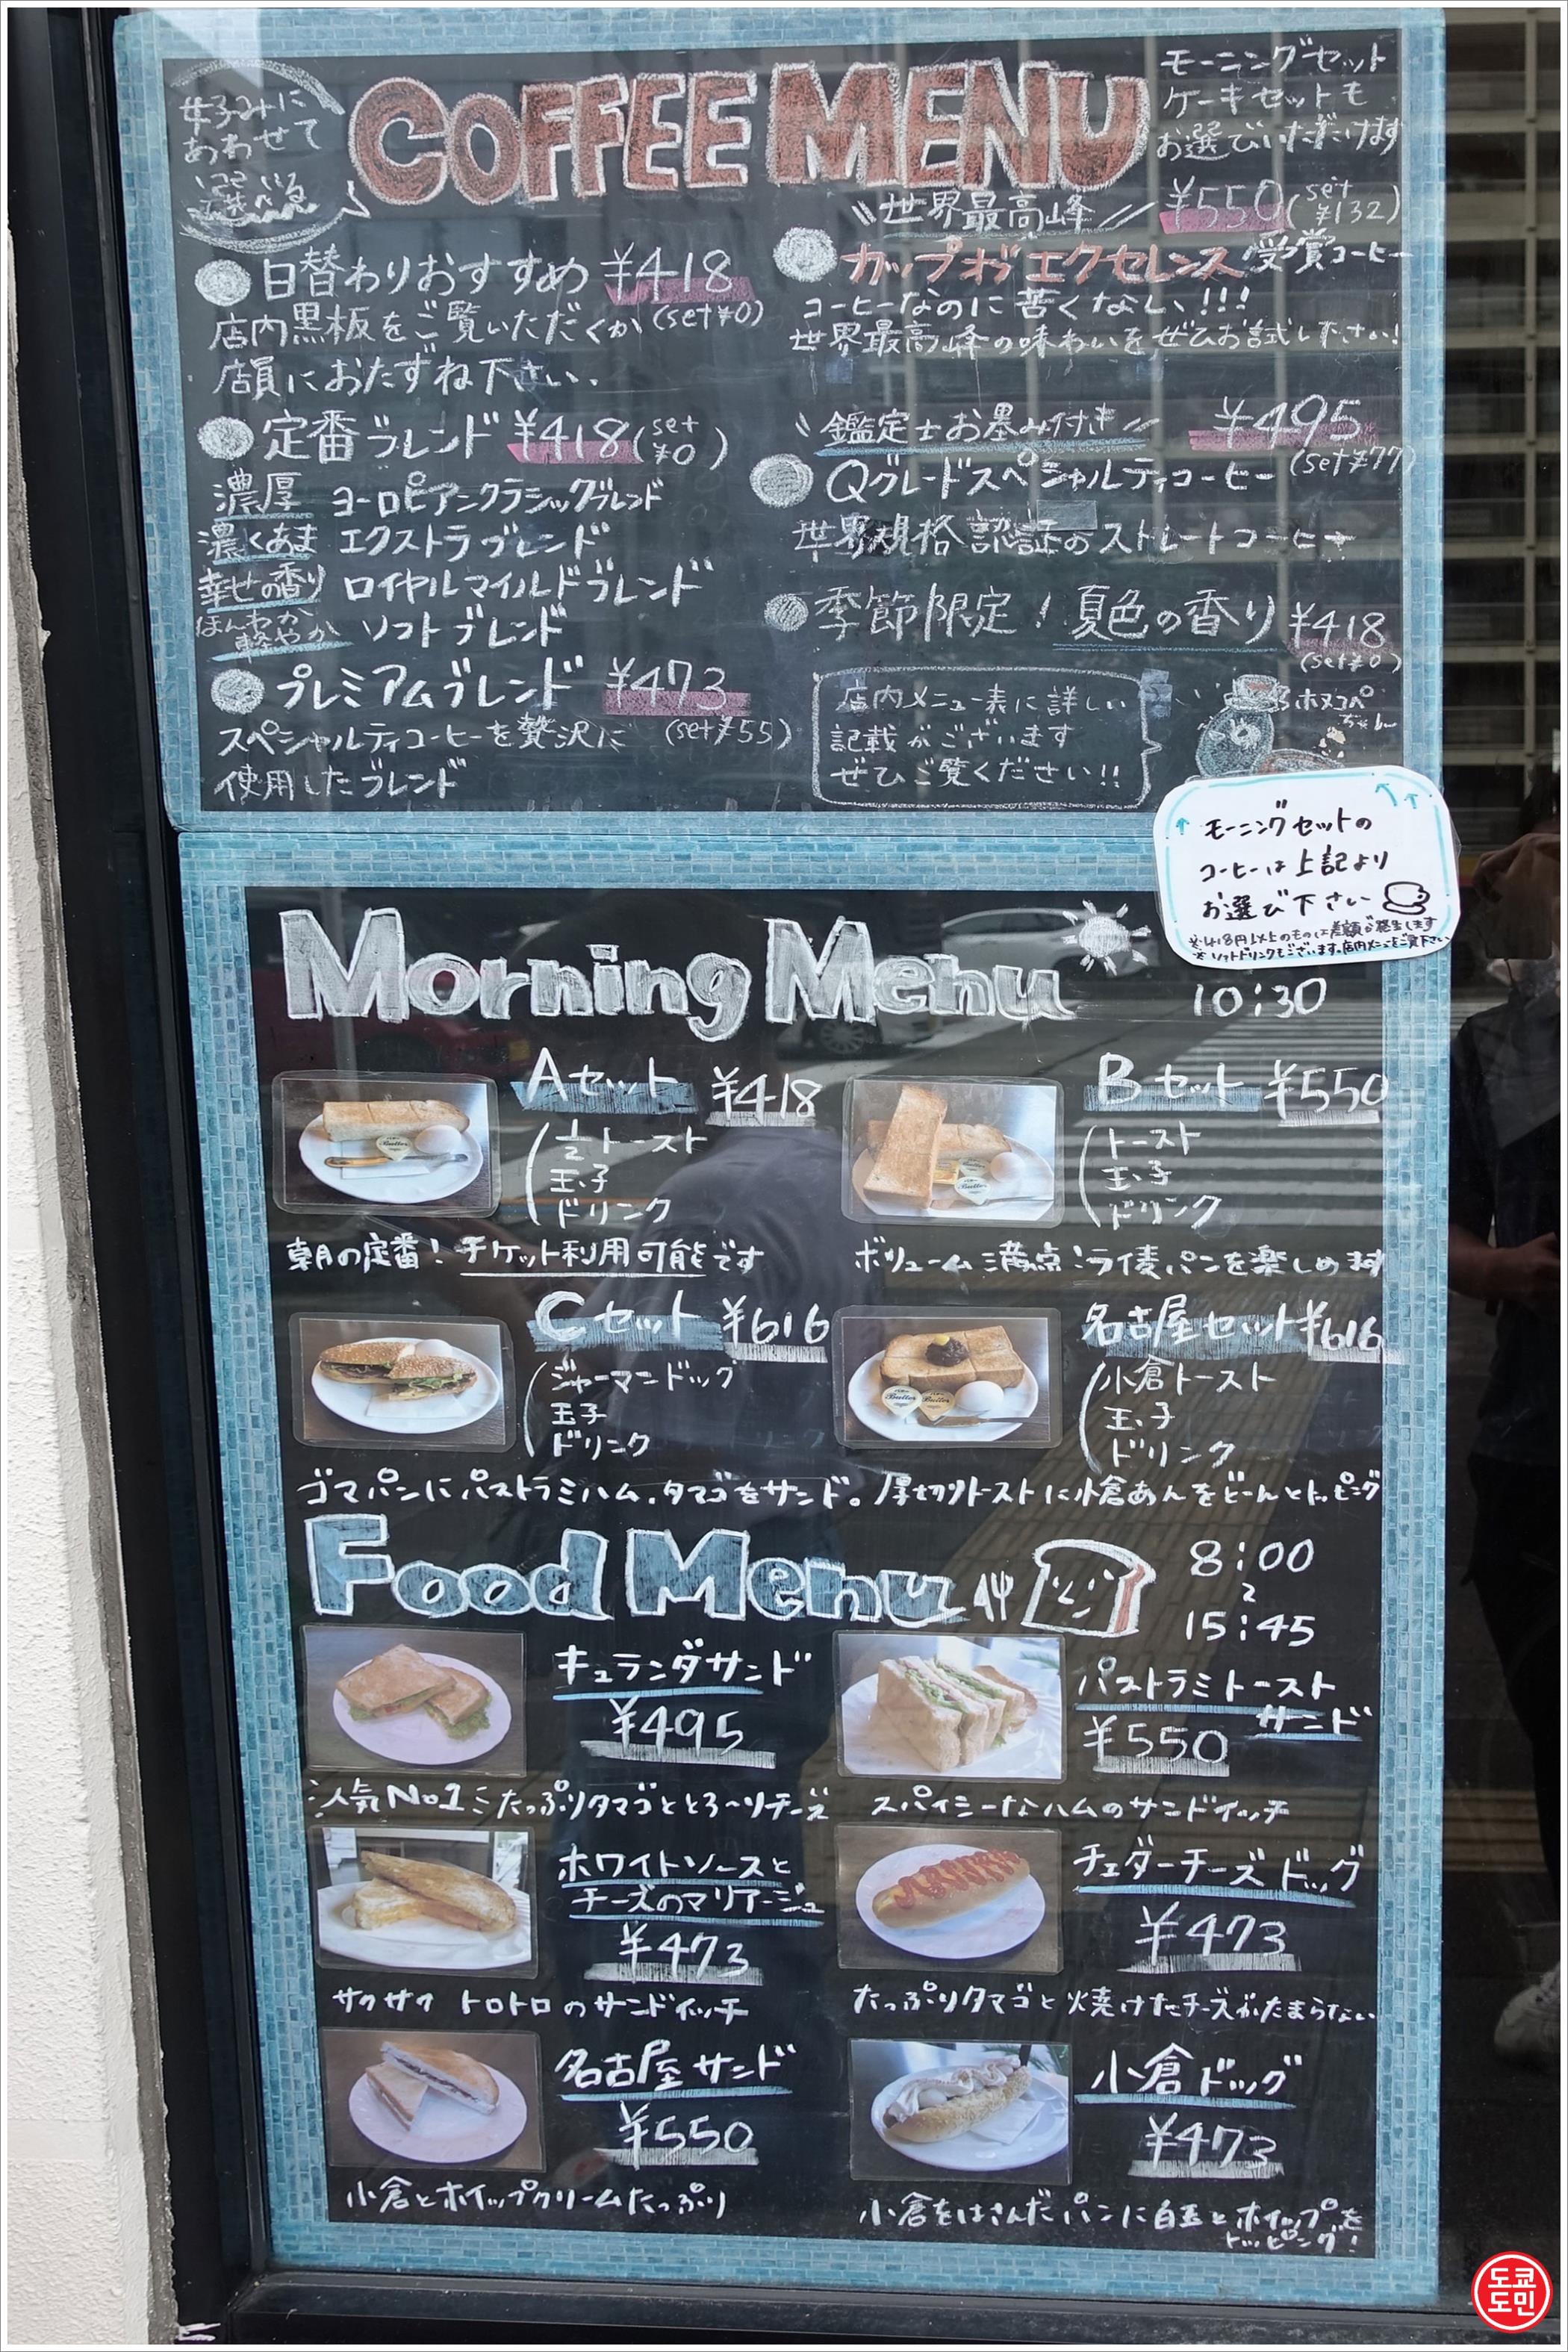 お好みに
あわせて
選べる
COFFEE MENU
モーニングセット
ケーキセットも
お選びいただけます
日替わりおすすめ ¥418
(set¥0)
店内黒板をご覧いただくか
店員におたずね下さい.
定番ブレンド ¥418(set ¥0)
濃厚 ヨーロピアンクラシックブレンド
濃くあま エクストラブレンド
幸せの香り ロイヤルマイルドブレンド
ほんわか
軽やか ソフトブレンド
プレミアムブレンド ¥473
(set¥55)
スペシャルティコーヒーを贅沢に
使用したブレンド
世界最高峰 ¥550(set ¥132)
カップオブエクセレンス受賞コーヒー
コーヒーなのに苦くない!!!
世界最高峰の味わいをぜひお試し下さい!
鑑定士お墨み付き ¥495
(set¥77)
Qグレードスペシャルティコーヒー
世界規格認証のストレートコーヒー
季節限定!夏色の香り ¥418
(set¥0)
店内メニュー表に詳しい
記載がございます
ぜひご覧ください!!
モーニングセットの
コーヒーは上記より
お選び下さい
※418円以上のものは差額が発生します
※ソフトドリンクもございます。店内メニューをご覧下さい
Morning Menu
10:30
Aセット ¥418
½トースト
玉子
ドリンク
朝の定番!チケット利用可能です
Bセット ¥550
トースト
玉子
ドリンク
ボリューム満点 ライ麦パンを楽しめます
Cセット ¥616
ジャーマンドッグ
玉子
ドリンク
ゴマパンにパストラミハム.タマゴをサンド。
名古屋セット ¥616
小倉トースト
玉子
ドリンク
厚切りトーストに小倉あんをどーんとトッピング
Food Menu
8:00
15:45
キュランダサンド
¥495
人気No1 たっぷりタマゴととろ〜りチーズ
パストラミトースト
サンド
¥550
スパイシーなハムのサンドイッチ
ホワイトソースと
チーズのマリアージュ
¥473
サクサク トロトロのサンドイッチ
チェダーチーズドッグ
¥473
たっぷりタマゴと焼けたチーズがたまらない
名古屋サンド
¥550
小倉とホイップクリームたっぷり
小倉ドッグ
¥473
小倉をはさんだパンに白玉とホイップを
トッピング!
도쿄
도민